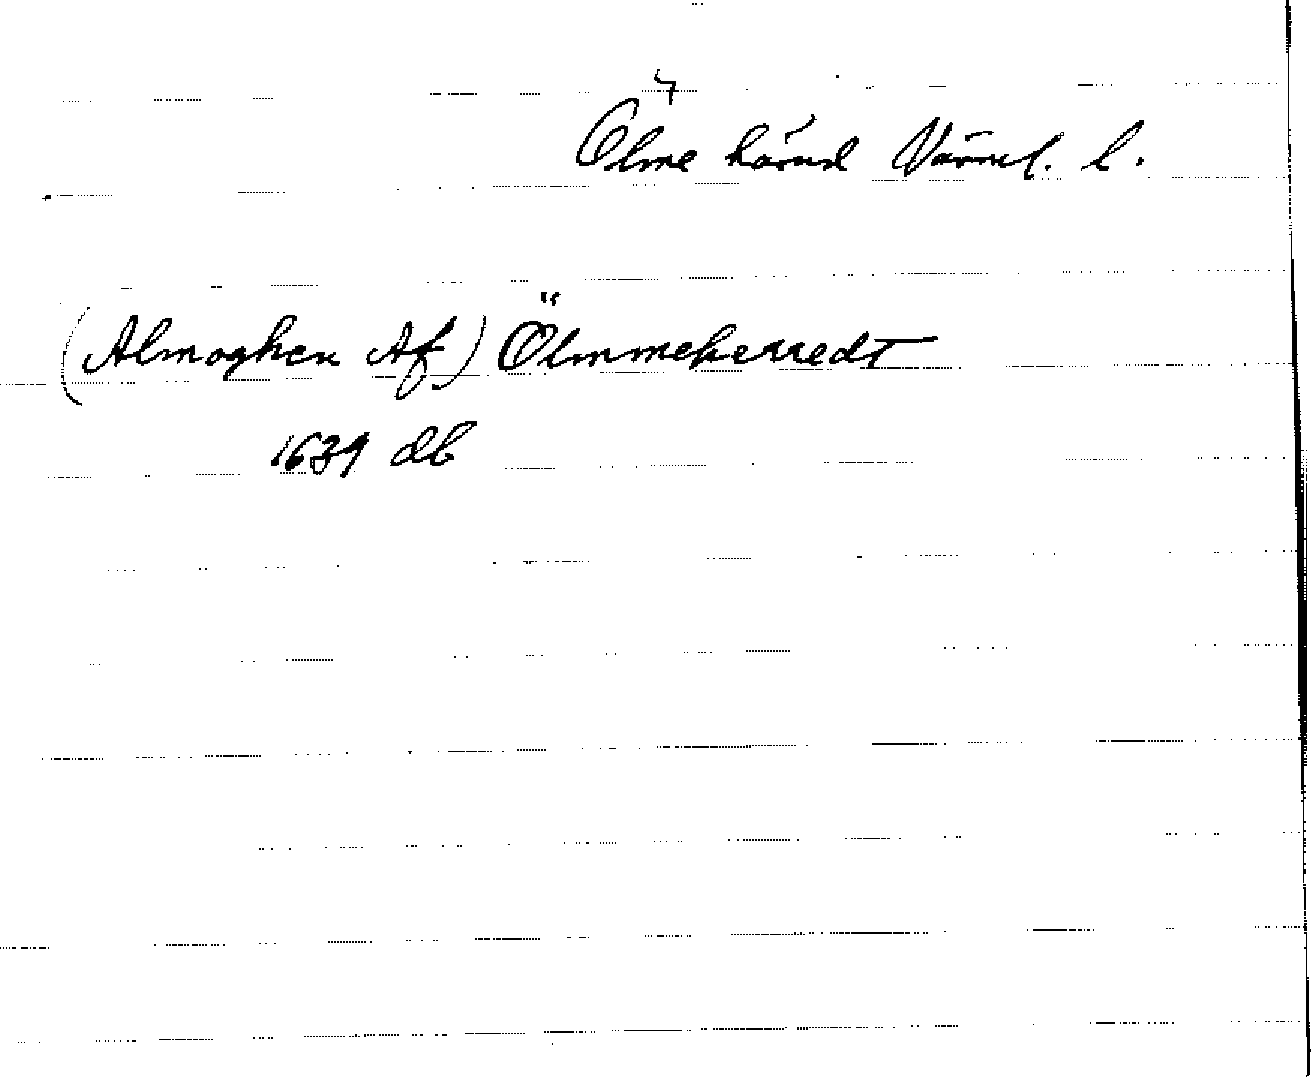 Ölme härad Värml. l.
(Almoghen Af) Ölmmeherredt
1639 db